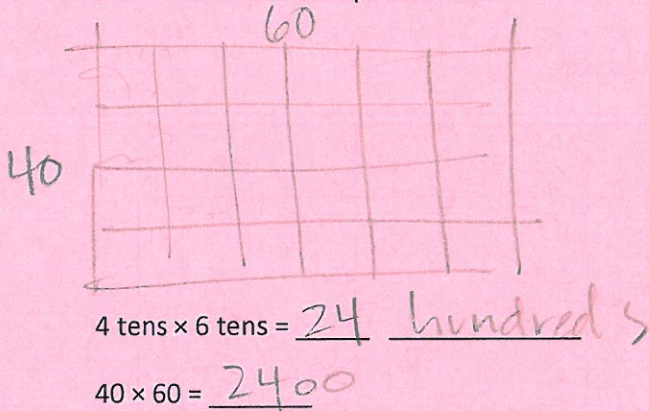 60
40
4 tens × 6 tens = 24 hundreds
40 × 60 = 2400